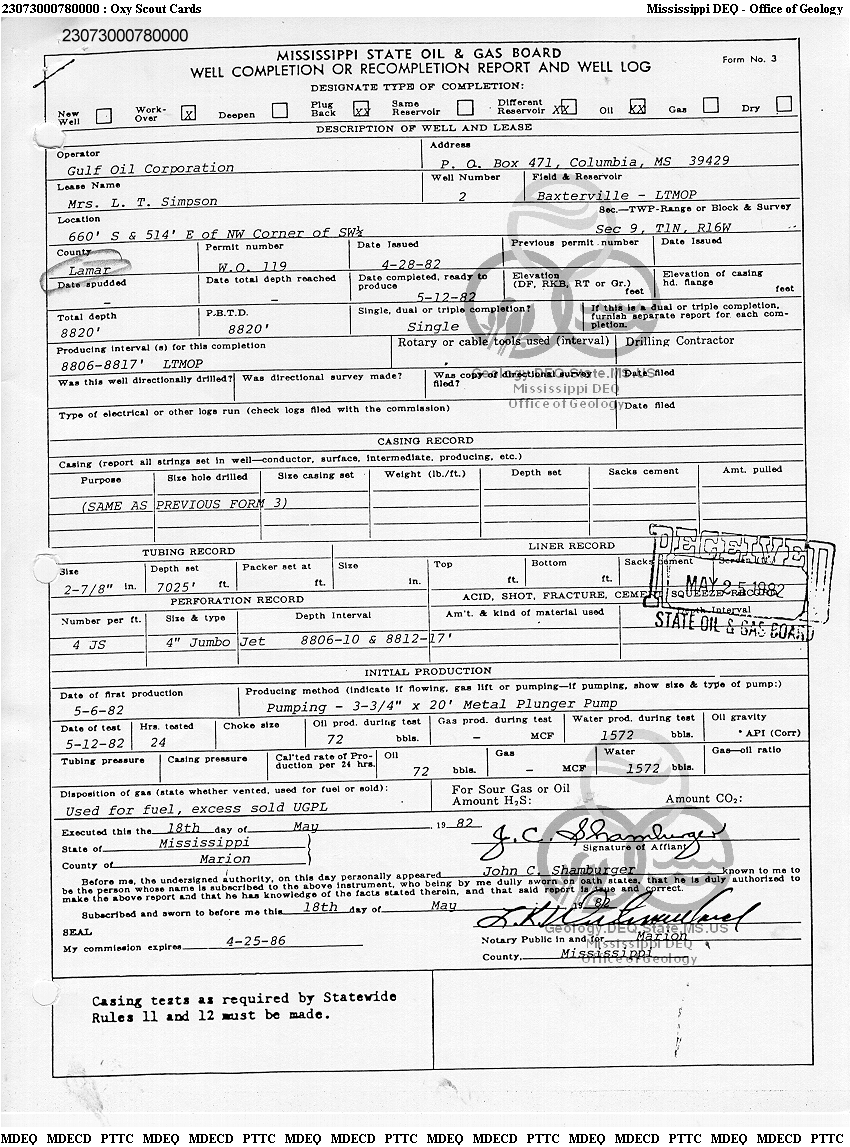 23073000780000 : Oxy Scout Cards Mississippi DEQ - Office of Geology
23073000780000
MISSISSIPPI STATE OIL & GAS BOARD
WELL COMPLETION OR RECOMPLETION REPORT AND WELL LOG Form No. 3
DESIGNATE TYPE OF COMPLETION:
New Well Work-Over X Deepen Plug Back XX Same Reservoir Different Reservoir XX Oil XX Gas Dry
DESCRIPTION OF WELL AND LEASE
Operator Address
Gulf Oil Corporation P. O. Box 471, Columbia, MS 39429
Lease Name Well Number Field & Reservoir
Mrs. L. T. Simpson 2 Baxterville - LTMOP
Location Sec.—TWP-Range or Block & Survey
660' S & 514' E of NW Corner of SW¼ Sec 9, T1N, R16W
County Permit number Date Issued Previous permit number Date Issued
Lamar W.O. 119 4-28-82
Date spudded Date total depth reached Date completed, ready to produce Elevation (DF, RKB, RT or Gr.) feet Elevation of casing hd. flange feet
- - 5-12-82
Total depth P.B.T.D. Single, dual or triple completion? If this is a dual or triple completion, furnish separate report for each completion.
8820' 8820' Single
Producing interval (s) for this completion Rotary or cable tools used (interval) Drilling Contractor
8806-8817' LTMOP
Was this well directionally drilled? Was directional survey made? Was copy of directional survey filed? Date filed
Geology.DEQ.State.MS.US
Mississippi DEQ
Office of Geology
Type of electrical or other logs run (check logs filed with the commission) Date filed
CASING RECORD
Casing (report all strings set in well—conductor, surface, intermediate, producing, etc.)
Purpose Size hole drilled Size casing set Weight (lb./ft.) Depth set Sacks cement Amt. pulled
(SAME AS PREVIOUS FORM 3)
TUBING RECORD LINER RECORD
Size Depth set Packer set at Size Top Bottom Sacks cement Screen
2-7/8" in. 7025' ft. ft. in. ft. ft.
RECEIVED
MAY 25 1982
STATE OIL & GAS BOARD
PERFORATION RECORD ACID, SHOT, FRACTURE, CEMENT SQUEEZE RECORD
Number per ft. Size & type Depth Interval Am't. & kind of material used Depth Interval
4 JS 4" Jumbo Jet 8806-10 & 8812-17'
INITIAL PRODUCTION
Date of first production Producing method (indicate if flowing, gas lift or pumping—if pumping, show size & type of pump:)
5-6-82 Pumping - 3-3/4" x 20' Metal Plunger Pump
Date of test Hrs. tested Choke size Oil prod. during test Gas prod. during test Water prod. during test Oil gravity
5-12-82 24 72 bbls. - MCF 1572 bbls. ° API (Corr)
Tubing pressure Casing pressure Cal'ted rate of Production per 24 hrs. Oil Gas Water Gas—oil ratio
72 bbls. - MCF 1572 bbls.
Disposition of gas (state whether vented, used for fuel or sold): For Sour Gas or Oil
Used for fuel, excess sold UGPL Amount H₂S: Amount CO₂:
Executed this the 18th day of May, 19 82 J. C. Shamburger
State of Mississippi Signature of Affiant
County of Marion
Before me, the undersigned authority, on this day personally appeared John C. Shamburger known to me to
be the person whose name is subscribed to the above instrument, who being by me dully sworn on oath states, that he is duly authorized to
make the above report and that he has knowledge of the facts stated therein, and that said report is true and correct.
Subscribed and sworn to before me this 18th day of May 1982
SEAL
My commission expires 4-25-86 Notary Public in and for Marion
County, Mississippi
Geology.DEQ.State.MS.US
Mississippi DEQ
Office of Geology
Casing tests as required by Statewide
Rules 11 and 12 must be made.
MDEQ MDECD PTTC MDEQ MDECD PTTC MDEQ MDECD PTTC MDEQ MDECD PTTC MDEQ MDECD PTTC MDEQ MDECD PTTC